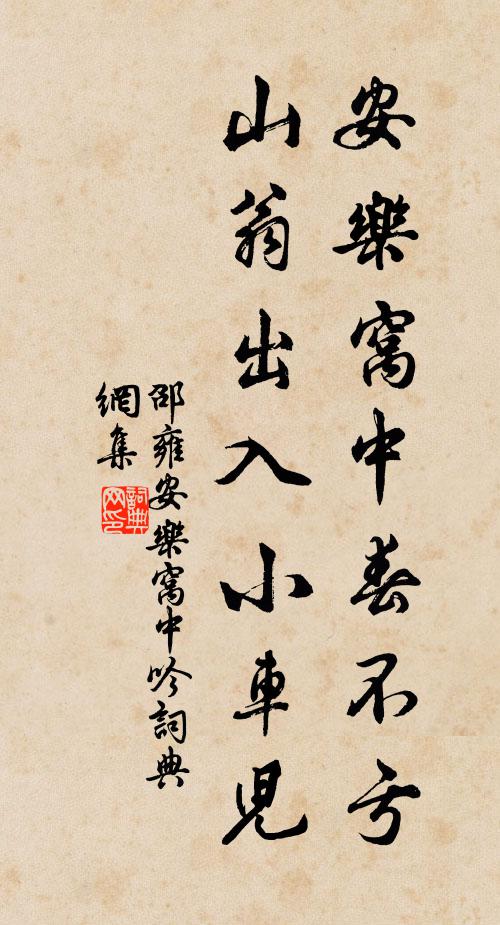 安樂窩中春不亏
山翁出入小車兒
邵雍安樂窩中吟詞典
網集
詞典
网印